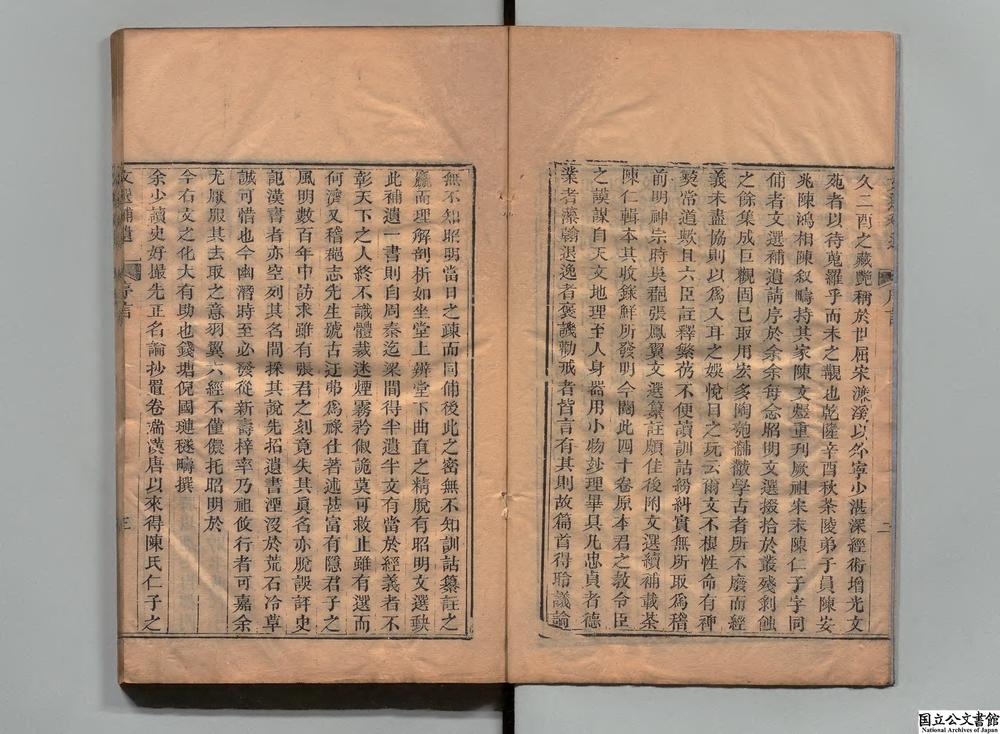 久二酉之藏艷稱於世屈宋濂溪以外寧少湛深經術增光文
苑者以待蒐羅乎而未之覯也乾隆辛酉秋茶陵弟子員陳安
兆陳鴻相陳叙疇持其家陳文煙重刋厥祖宋末陳仁子字同
俌者文選補遺請序於余余每念昭明文選掇拾於叢殘剩蝕
之餘集成巨觀固已取用宏多陶鎔黼黻學古者所不廢而經
義未盡協則以爲又耳之娛悅目之玩云爾文不根性命有裨
契常道歟且六臣註釋繁仍不便讀訓詁紛糾實無所取爲稽
前明神宗時吳郡張鳳翼文選纂註頗佳後附文選續補載茶
陳仁輯本其收錄鮮所發明今閱此四十卷原本君之教令臣
之謨謀自天文地理至人身器用小物玅理畢具凡忠貞者德
業者藻翰退逸者褒譏勸戒者皆言有其則故篇首得聆議論
無不知昭明當日之疎而同俌後此之密無不知訓詁纂註之
麤而理解剖析如坐堂上辨堂下曲直之精脫有昭明文選缺
此補遺一書則自周秦迄梁間得半遺半文有當於經義者不
彰天下之人終不識體裁迷煙霧矜俶詭莫可救止雖有選而
何濟又稽郡志先生號古迂弗爲祿仕著述甚富有隱君子之
風明數百年中訪求雖有張君之刻竟失其眞名亦脫誤評史
記漢書者亦空列其名間採其說先招遺書湮沒於荒石冷草
誠可惜也今幽潛時至必發從新壽梓率乃祖攸行者可嘉余
尤厭服其去取之意羽翼六經不僅儗托昭明於
今右文之化大有助也錢塘倪國璉穟疇撰
余少讀史好撮先正名論抄置卷端漢唐以來得陳氏仁子之
文選補遺
序言
三
二
国立公文書館
National Archives of Japan